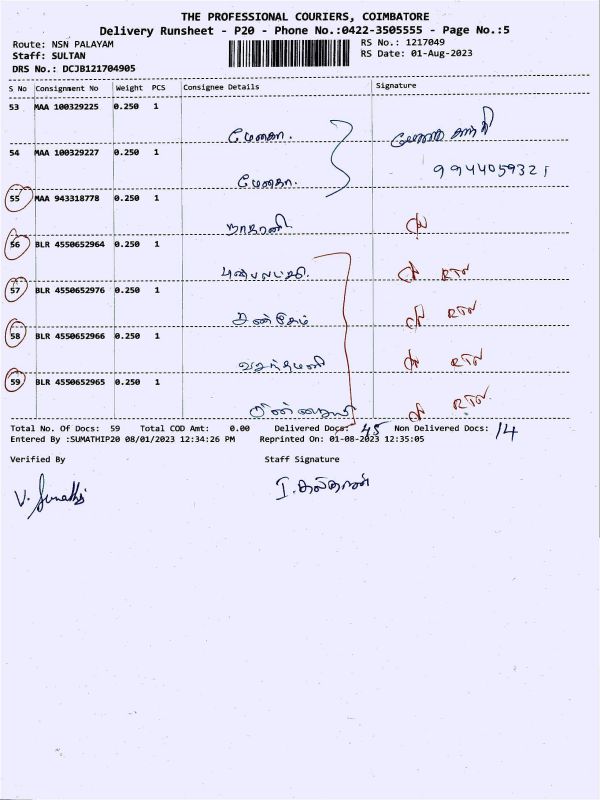 THE PROFESSIONAL COURIERS, COIMBATORE
Delivery Runsheet - P20 - Phone No.:0422-3505555 - Page No.:5
Route: NSN PALAYAM RS No.: 1217049
Staff: SULTAN RS Date: 01-Aug-2023
DRS No.: DCJB121704905
S No Consignment No Weight PCS Consignee Details Signature
53 MAA 100329225 0.250 1
மேகை.
54 MAA 100329227 0.250 1
9944059321
மேகை.
55 MAA 943318778 0.250 1
56 BLR 4550652964 0.250 1
RTN
57 BLR 4550652976 0.250 1
RTN
58 BLR 4550652966 0.250 1
வசந்தமணி RTN
59 BLR 4550652965 0.250 1
RTN
Total No. Of Docs: 59 Total COD Amt: 0.00 Delivered Docs: 45 Non Delivered Docs: 14
Entered By :SUMATHIP20 08/01/2023 12:34:26 PM Reprinted On: 01-08-2023 12:35:05
Verified By Staff Signature
V. Sumathi I. சுல்தான்